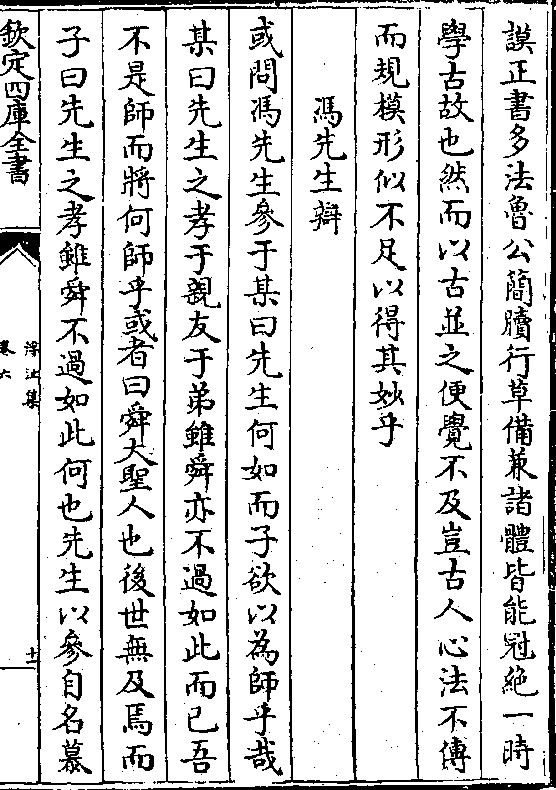 謨正書多法魯公簡牘行草備兼諸體皆能冠絶一時
學古故也然而以古並之便覺不及豈古人心法不傳
而規模形似不足以得其妙乎
馮先生辯
或問馮先生參于某曰先生何如而子欲以為師乎哉
某曰先生之孝于親友于弟雖舜亦不過如此而已吾
不是師而將何師乎或者曰舜大聖人也後世無及焉而
子曰先生之孝雖舜不過如此何也先生以參自名慕
欽定四庫全書
浮沚集
卷六
十一